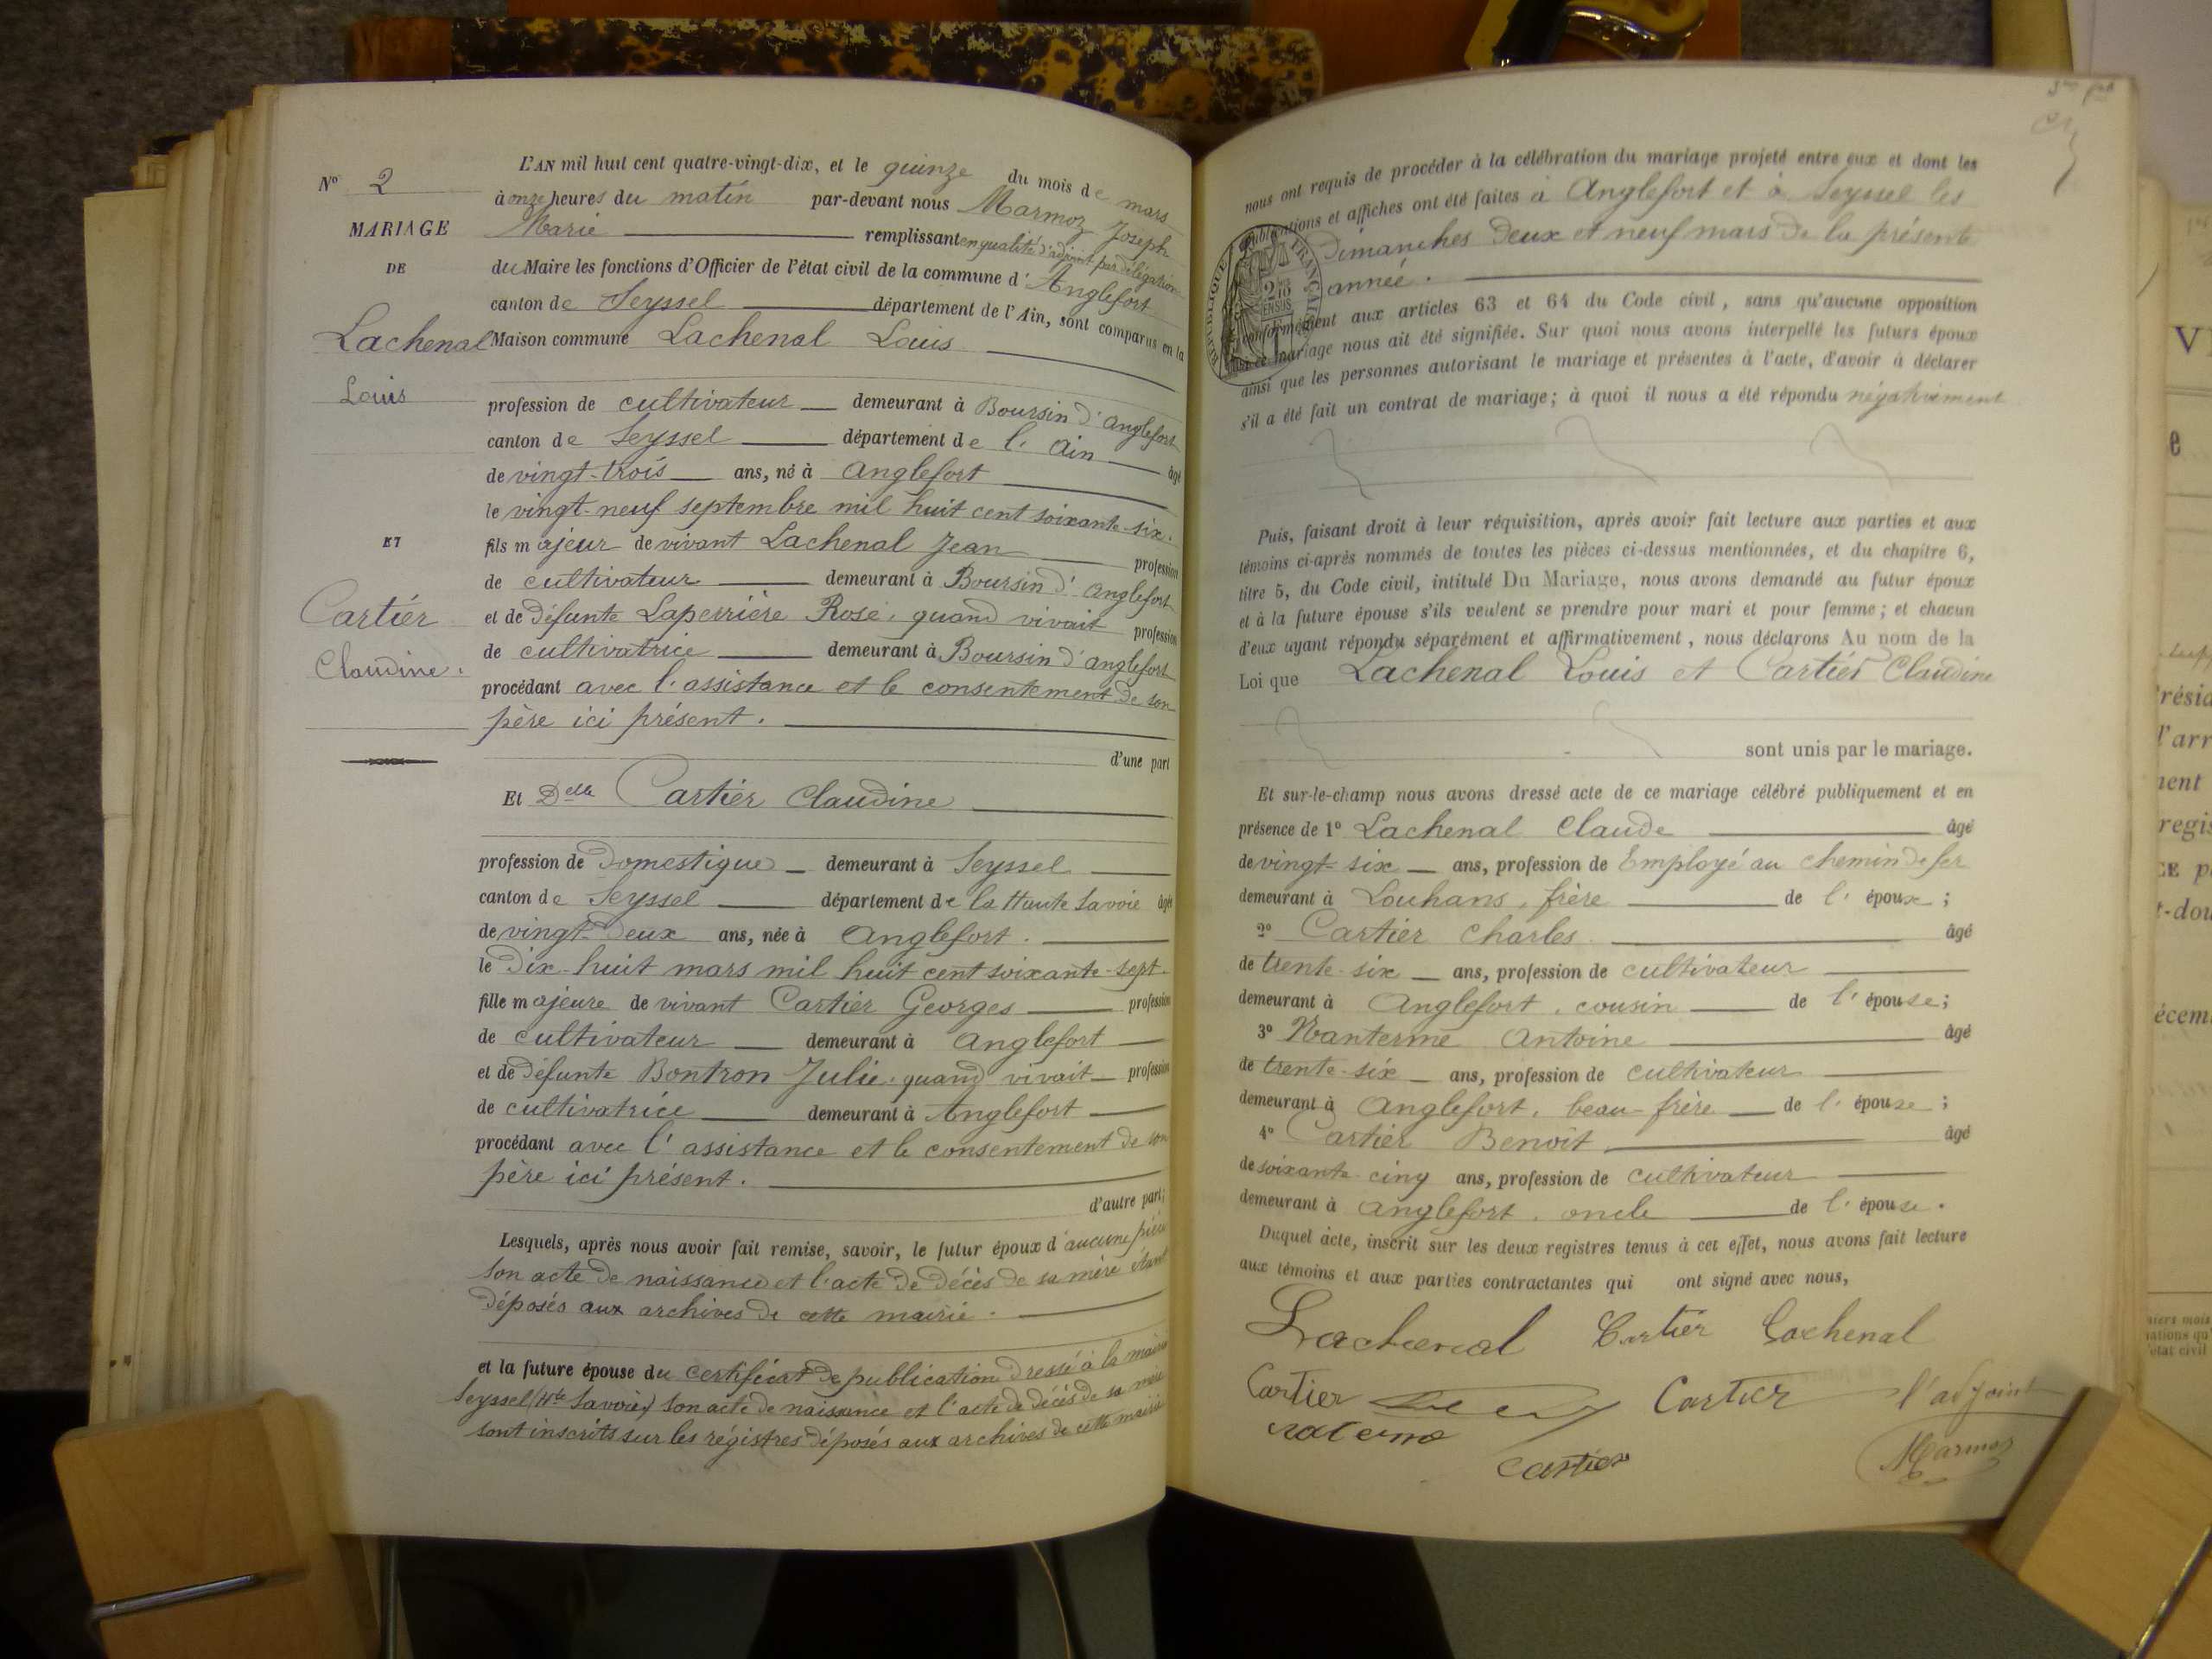 N° 2
MARIAGE
DE
Lachenal
Louis
ET
Cartier
Claudine.
L'AN mil huit cent quatre-vingt-dix, et le quinze du mois de mars
à onze heures du matin par-devant nous Marmoz Joseph
Marie remplissant en qualité d'adjoint par délégation
du Maire les fonctions d'Officier de l'état civil de la commune d'Anglefort
canton de Seyssel département de l'Ain, sont comparus en la
Maison commune Lachenal Louis
profession de cultivateur demeurant à Boursin d'Anglefort
canton de Seyssel département de l'Ain âgé
de vingt-trois ans, né à Anglefort
le vingt-neuf septembre mil huit cent soixante-six.
fils majeur de vivant Lachenal Jean profession
de cultivateur demeurant à Boursin d'Anglefort
et de défunte Laperrière Rose, quand vivait profession
de cultivatrice demeurant à Boursin d'anglefort
procédant avec l'assistance et le consentement de son
père ici présent.
d'une part
Et Delle Cartier Claudine
profession de Domestique demeurant à Seyssel
canton de Seyssel département de la Haute Savoie âgée
de vingt-deux ans, née à Anglefort.
le dix-huit mars mil huit cent soixante-sept.
fille majeure de vivant Cartier Georges profession
de cultivateur demeurant à Anglefort
et de défunte Bontron Julie, quand vivait profession
de cultivatrice demeurant à Anglefort
procédant avec l'assistance et le consentement de son
père ici présent.
d'autre part;
Lesquels, après nous avoir fait remise, savoir, le futur époux d'aucune pièce
son acte de naissance et l'acte de décès de sa mère étant
déposés aux archives de cette mairie.
et la future épouse du certificat de publication dressé à la mairie
Seyssel (Hte Savoie) son acte de naissance et l'acte de décès de sa mère
sont inscrits sur les régistres déposés aux archives de cette mairie
nous ont requis de procéder à la célébration du mariage projeté entre eux et dont les
publications et affiches ont été faites à Anglefort et à Seyssel les
Dimanches deux et neuf mars de la présente
année.
conformément aux articles 63 et 64 du Code civil, sans qu'aucune opposition
mariage nous ait été signifiée. Sur quoi nous avons interpellé les futurs époux
ainsi que les personnes autorisant le mariage et présentes à l'acte, d'avoir à déclarer
s'il a été fait un contrat de mariage; à quoi il nous a été répondu négativement
Puis, faisant droit à leur réquisition, après avoir fait lecture aux parties et aux
témoins ci-après nommés de toutes les pièces ci-dessus mentionnées, et du chapitre 6,
titre 5, du Code civil, intitulé Du Mariage, nous avons demandé au futur époux
et à la future épouse s'ils veulent se prendre pour mari et pour femme; et chacun
d'eux ayant répondu séparément et affirmativement, nous déclarons Au nom de la
Loi que Lachenal Louis et Cartier Claudine
sont unis par le mariage.
Et sur-le-champ nous avons dressé acte de ce mariage célébré publiquement et en
présence de 1° Lachenal Claude âgé
de vingt-six ans, profession de Employé au chemin de fer
demeurant à Louhans, frère de l'époux;
2° Cartier Charles âgé
de trente-six ans, profession de cultivateur
demeurant à Anglefort, cousin de l'épouse;
3° Nanterme Antoine âgé
de trente-six ans, profession de cultivateur
demeurant à Anglefort, beau-frère de l'épouse;
4° Cartier Benoit âgé
de soixante-cinq ans, profession de cultivateur
demeurant à Anglefort, oncle de l'épouse.
Duquel acte, inscrit sur les deux registres tenus à cet effet, nous avons fait lecture
aux témoins et aux parties contractantes qui ont signé avec nous,
Lachenal Cartier Lachenal
Cartier Cartier l'adjoint
Cartier Marmoz